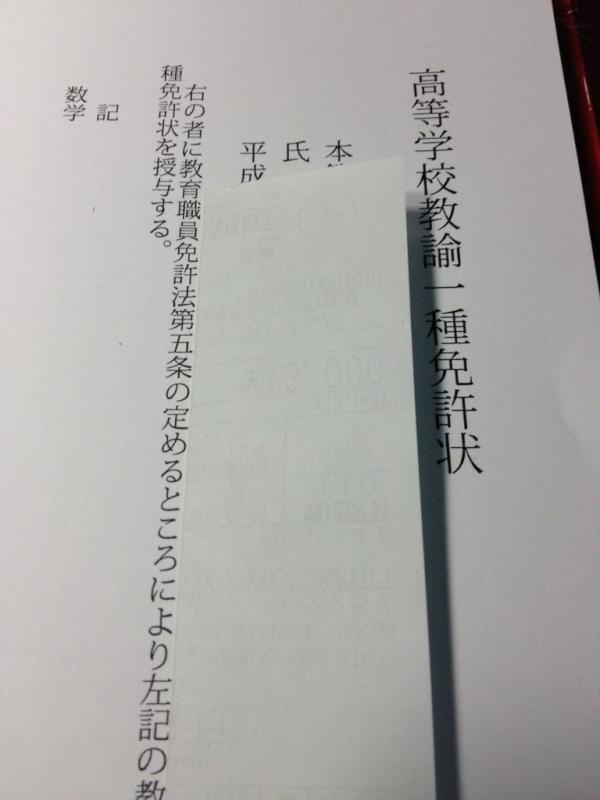 高等学校教諭一種免許状
本
氏
平成
右の者に教育職員免許法第五条の定めるところにより左記の教
種免許状を授与する。
記
数学